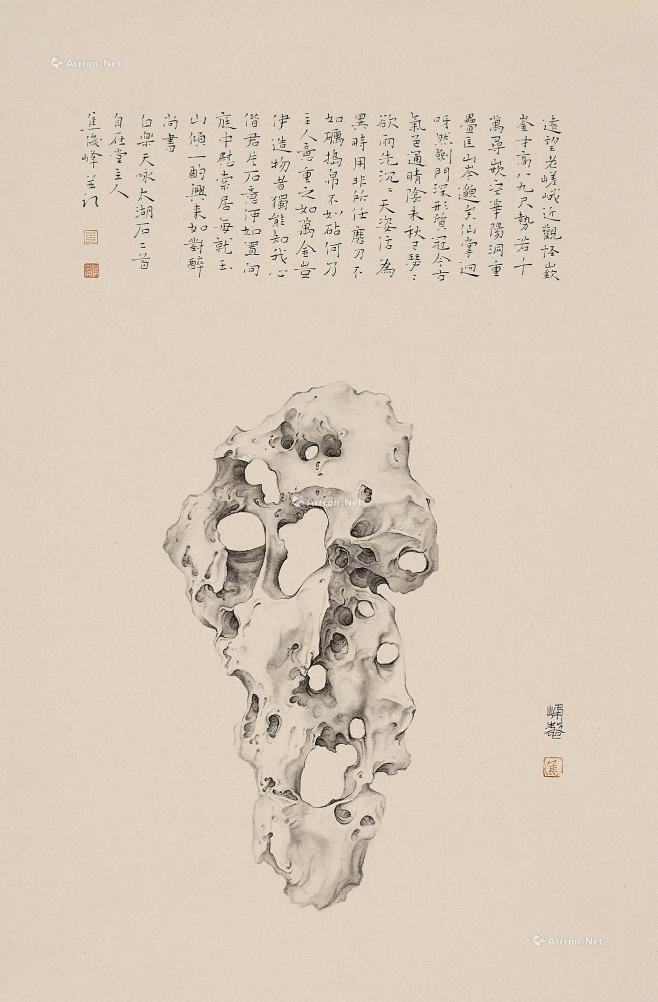 遠望老嵯峨近觀怪嶔
崟才高八九尺勢若千
萬尋嵌空華陽洞重
疊匡山岑邈矣仙掌迥
呀然劍門深形質冠今古
氣色通晴陰未秋已瑟〻
欲雨先沉〻天姿信為
異時用非所任磨刀不
如礪搗帛不如砧何乃
主人意重之如萬金豈
伊造物者獨能知我心
借君片石意何如置向
庭中慰索居每就玉
山傾一酌興来如對醉
尚書
白樂天咏太湖石二首
自在堂主人
焦俊峰並记
焦
Artron.Net
Artron.Net
Artron.Net